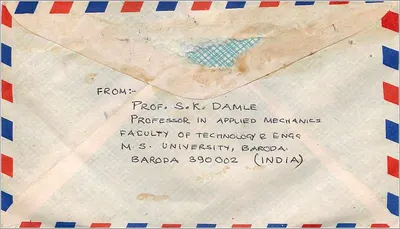 FROM:-
PROF. S.K. DAMLE
PROFESSOR IN APPLIED MECHANICS
FACULTY OF TECHNOLOGY & ENGG
M.S. UNIVERSITY, BARODA.
BARODA 390002 (INDIA)